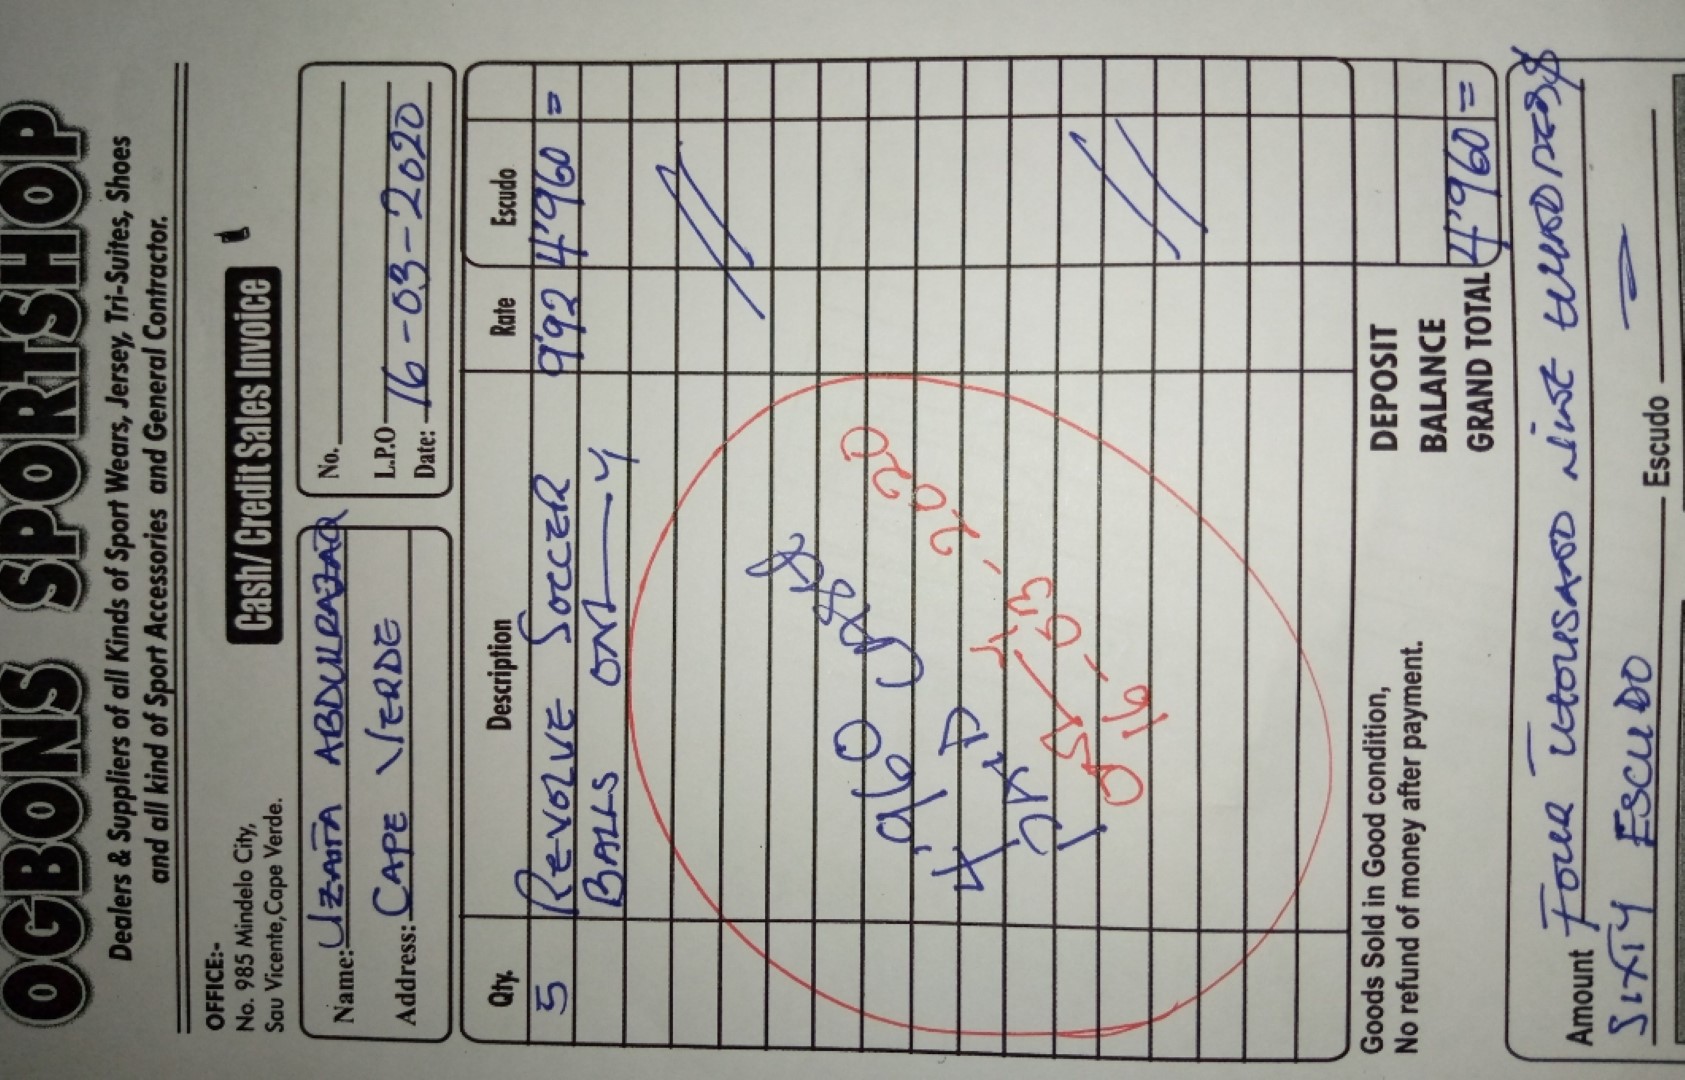 OGBONS SPORTSHOP
Dealers & Suppliers of all Kinds of Sport Wears, Jersey, Tri-Suites, Shoes
and all kind of Sport Accessories and General Contractor.
OFFICE:-
No. 985 Mindelo City,
Sau Vicente,Cape Verde.
Cash/Credit Sales Invoice
Name: UZAITA ABDULRAZAQ
Address: CAPE VERDE
No.
L.P.O
Date: 16-03-2020
Qty. Description Rate Escudo
5 REVOLVE SOCCER 992 4'960 =
BALLS ONLY
4'960 CASH
PAID
16-03-2020
Goods Sold in Good condition,
No refund of money after payment.
DEPOSIT
BALANCE
GRAND TOTAL 4'960 =
Amount FOUR THOUSAND NINE HUNDRED &
SIXTY ESCUDO Escudo =